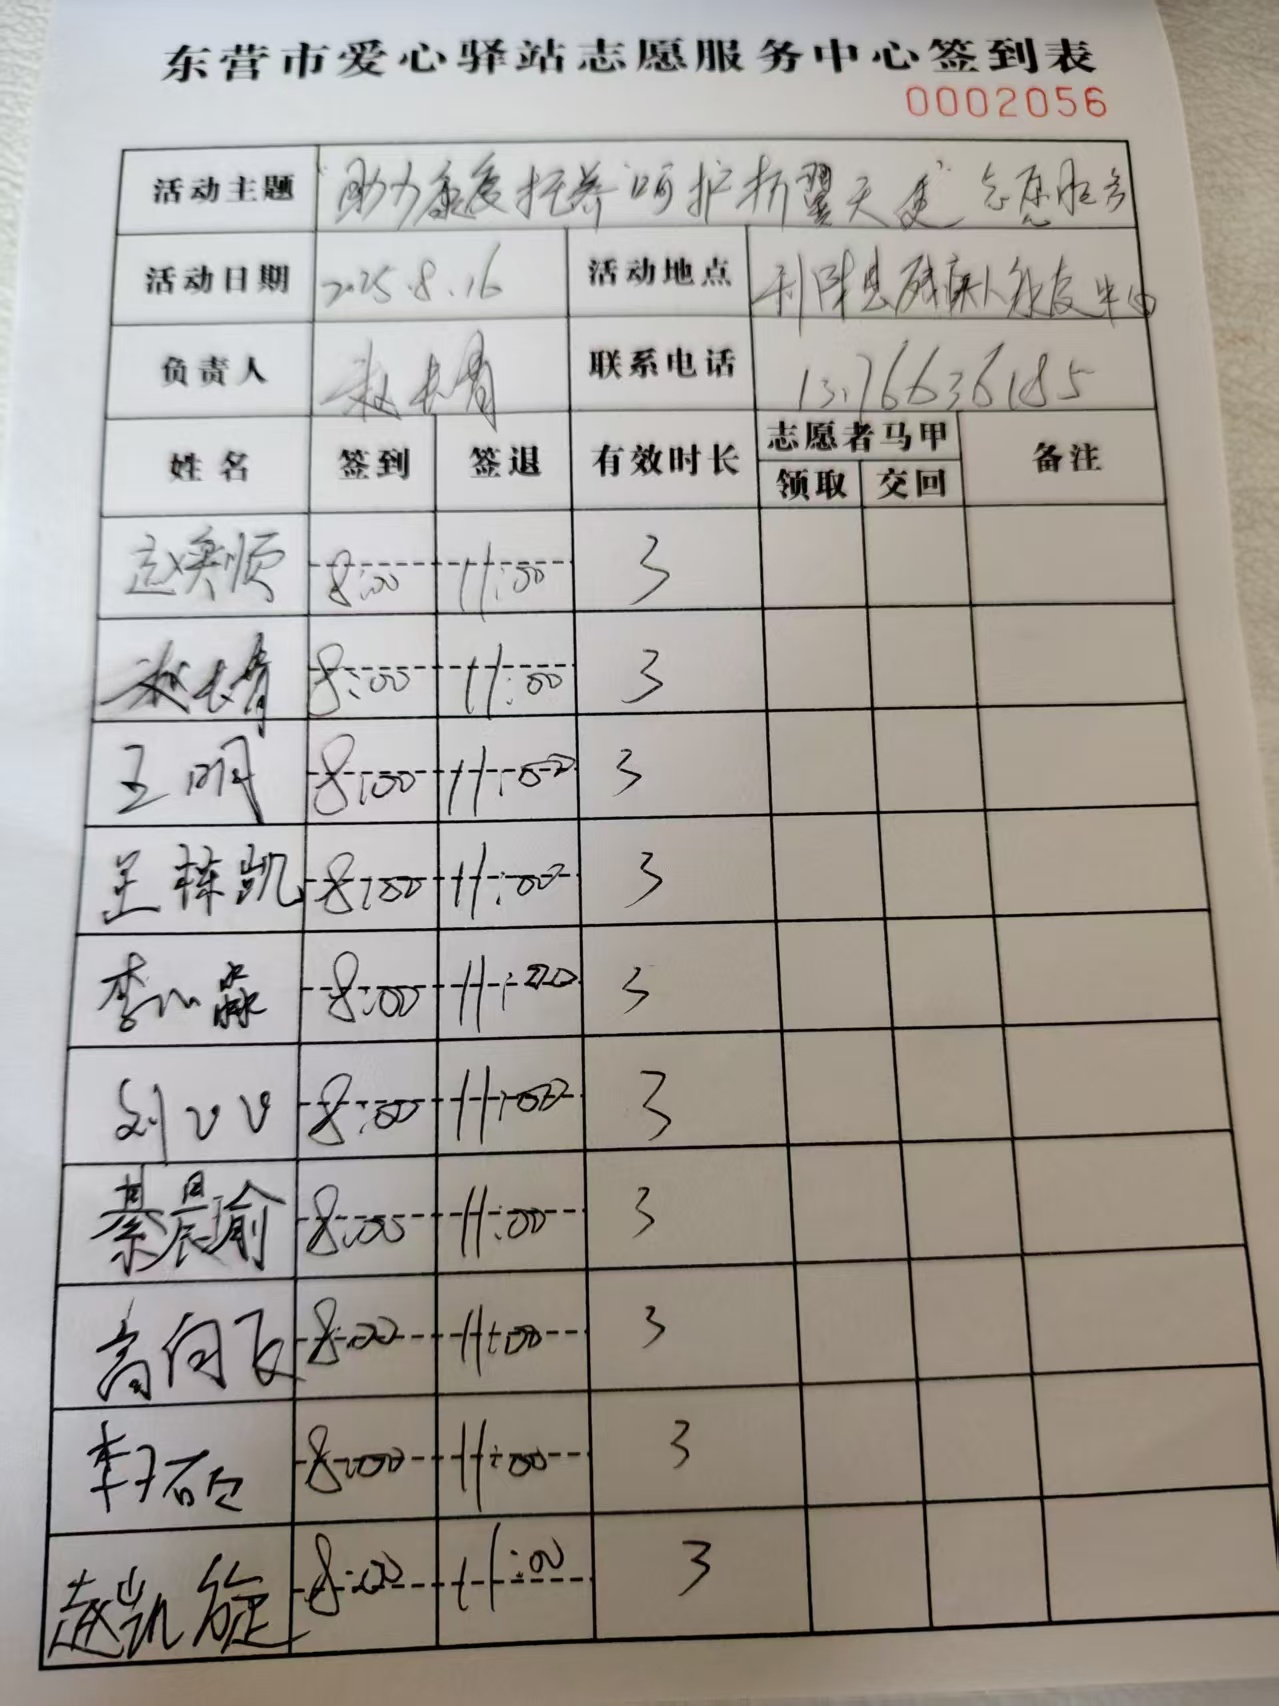 东营市爱心驿站志愿服务中心签到表
0002056
活动主题 "助力康复托养 呵护折翼天使"志愿服务
活动日期 2025.8.16 活动地点 利津县残疾人康复中心
负责人 赵长青 联系电话 13176636185
姓名 签到 签退 有效时长 志愿者马甲 备注
领取 交回
赵奖顺 8:00 11:00 3
赵长青 8:00 11:00 3
王明 8:00 11:00 3
王栋凯 8:00 11:00 3
李心淼 8:00 11:00 3
刘 8:00 11:00 3
綦晨瑜 8:00 11:00 3
高向飞 8:00 11:00 3
李 8:00 11:00 3
赵凯旋 8:00 11:00 3